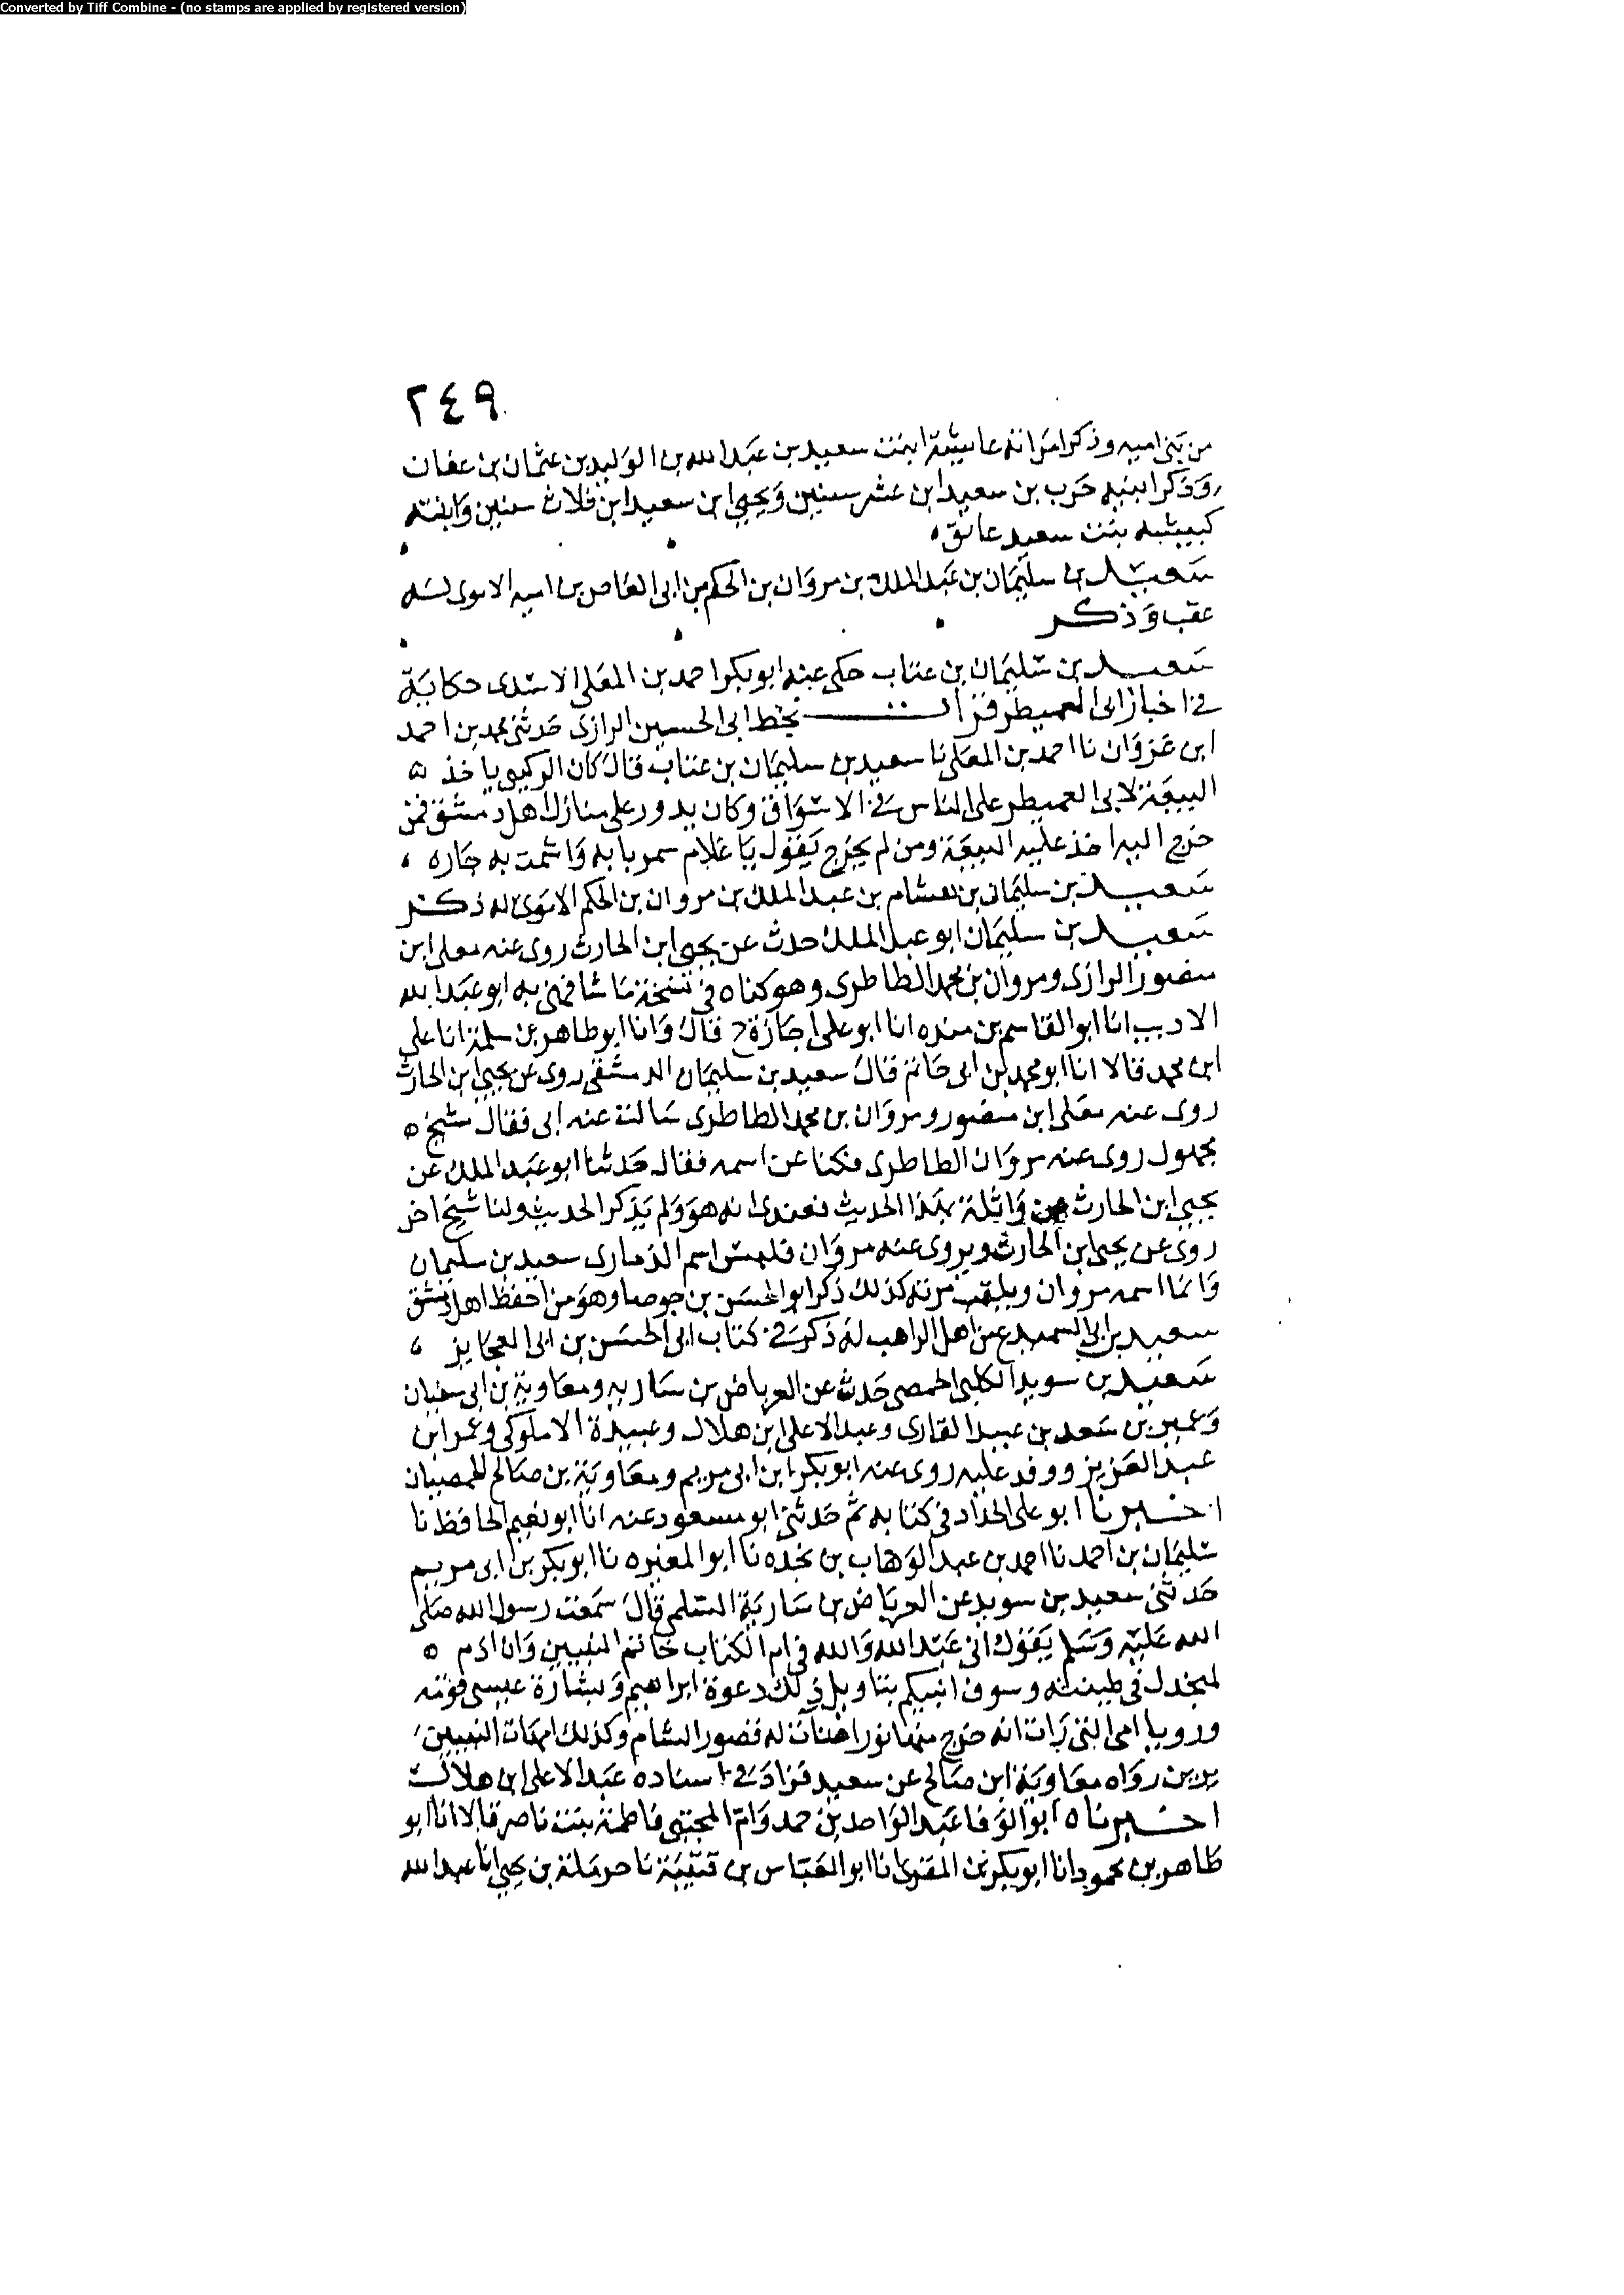 Converted by Tiff Combine - (no stamps are applied by registered version)
٢٤٩
من بني اميه وذكر امراته عايشة ابنت سعيد بن عبد الله بن الوليد بن عثمان بن عفان
وذكر ابنيه حرب بن سعيد ابن عشر سنين ويحيى ابن سعيد ابن ثلاث سنين وابنته
كبيشه بنت سعيد عاتق
سعيد بن سليمان بن عبد الملك بن مروان بن الحكم بن ابى العاص بن اميه الاموى له
عقب وذكر
سعيد بن سليمان بن عتاب حكى عنه ابو بكر احمد بن المعلى الاسدى حكاية
في اخبار ابى العميطر قرات بخط ابى الحسين الرازى حدثني محمد بن احمد
ابن غزوان نا احمد بن المعلى نا سعيد بن سليمان بن عتاب قال كان الركبي ياخذ ه
البيعة لابى العميطر على الناس في الاسواق وكان يدور على منازل اهل دمشق فمن
خرج اليه اخذ عليه البيعة ومن لم يخرج يقول يا غلام سمر بابه واشمت به جاره
سعيد بن سليمان بن هشام بن عبد الملك بن مروان بن الحكم الاموى له ذكر
سعيد بن سليمان ابو عبد الملك حدث عن يحيى ابن الحارث روى عنه معلى ابن
منصور الرازى ومروان بن محمد الطاطرى وهو كناه في نسخة ما شافهني به ابو عبد الله
الاديب انا ابو القاسم بن منده انا ابو على اجازة ح قال وانا ابو طاهر بن سلمة انا على
ابن محمد قالا انا ابو محمد بن ابى حاتم قال سعيد بن سليمان الدمشقى روى عن يحيى ابن الحارث
روى عنه معلى ابن منصور ومروان بن محمد الطاطرى سالت عنه ابى فقال شيخ ه
مجهول روى عنه مروان الطاطرى فكنا عن اسمه فقال حدثنا ابو عبد الملك عن
يحيى ابن الحارث عن واثلة بهذا الحديث فعندى انه هو ولم يذكر الحديث ولنا شيخ اخر
روى عن يحيى ابن الحارث ويروى عنه مروان فليس اسم الذمارى سعيد بن سليمان
وانما اسمه مروان ويلقب مرنه كذلك ذكر ابو الحسن بن جوصا وهو من احفظ اهل دمشق
سعيد بن ابى السميدع من اهل الراهب له ذكر في كتاب ابى الحسن بن ابى العجايز
سعيد بن سويد الكلبى الحمصى حدث عن العرباض بن ساريه ومعاوية بن ابى سفيان
وعمير بن سعد بن عبيد القارى وعبد الاعلى ابن هلال وعبيدة الاملوكى وعمر ابن
عبد العزيز ووفد عليه روى عنه ابو بكر ابن ابى مريم ومعاوية بن صالح الحمصيان
اخبرنا ابو على الحداد في كتابه ثم حدثني ابو مسعود عنه انا ابو نعيم الحافظ نا
سليمان بن احمد نا احمد بن عبد الوهاب بن نجده نا ابو المغيره نا ابو بكر بن ابى مريم
حدثني سعيد بن سويد عن العرباض بن سارية السلمى قال سمعت رسول الله صلى
الله عليه وسلم يقول انى عبد الله والله في ام الكتاب خاتم النبيين وان ادم ه
لمنجدل في طينته وسوف انبيكم بتاويل ذلك دعوة ابراهيم وبشارة عيسى قومه
ورويا امى التى رات انه خرج منها نور اضات له قصور الشام وكذلك امهات النبيين
يرين رواه معاوية ابن صالح عن سعيد فزاد في اسناده عبد الاعلى ابن هلال
اخبرناه ابو الوفا عبد الواحد بن حمد وام المجتبى فاطمة بنت ناصر قالا انا ابو
طاهر بن محمود انا ابو بكر بن المقرى انا ابو العباس بن قتيبة نا حرملة بن يحيى انا عبد الله